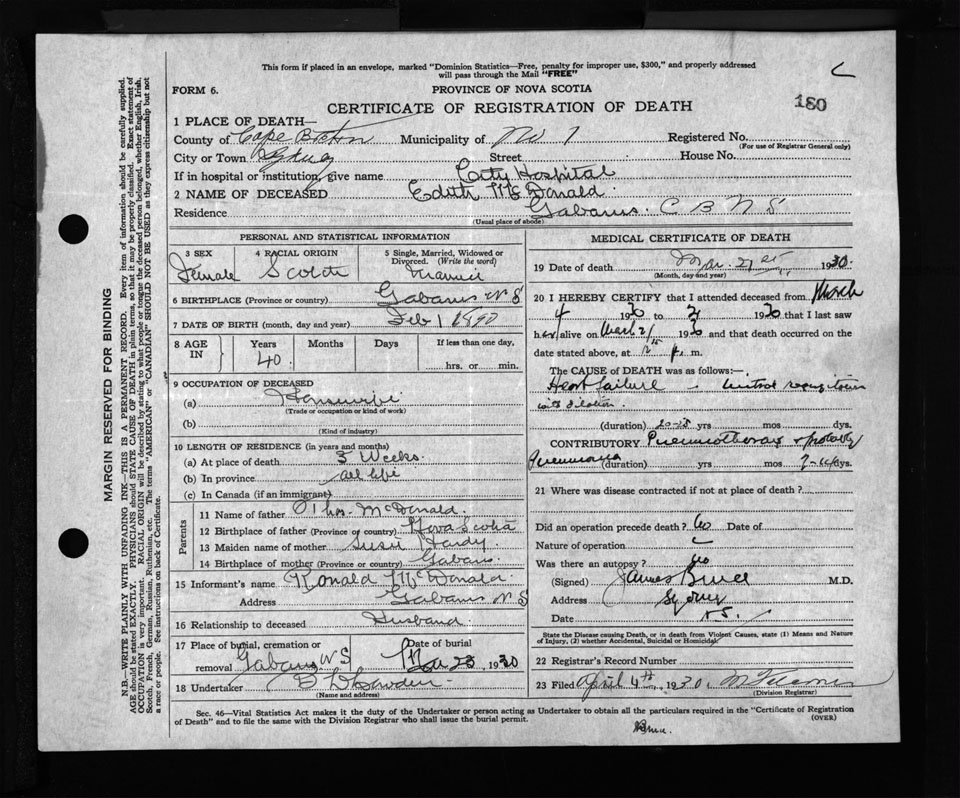 This form if placed in an envelope, marked "Dominion Statistics—Free, penalty for improper use, $300," and properly addressed
will pass through the Mail "FREE"
FORM 6. PROVINCE OF NOVA SCOTIA
180
CERTIFICATE OF REGISTRATION OF DEATH
1 PLACE OF DEATH—
County of Cape Breton Municipality of No 1 Registered No.
(For use of Registrar General only)
City or Town Sydney Street House No.
If in hospital or institution, give name City Hospital
2 NAME OF DECEASED Edith McDonald
Residence Gabarus C B N S
(Usual place of abode)
PERSONAL AND STATISTICAL INFORMATION
3 SEX 4 RACIAL ORIGIN 5 Single, Married, Widowed or
Divorced. (Write the word)
Female Scotch Married
6 BIRTHPLACE (Province or country) Gabarus N S
7 DATE OF BIRTH (month, day and year) Feb 1 1890
8 AGE IN Years Months Days If less than one day,
40 hrs. or min.
9 OCCUPATION OF DECEASED
(a) Housewife
(Trade or occupation or kind of work)
(b)
(Kind of industry)
10 LENGTH OF RESIDENCE (in years and months)
(a) At place of death 3 Weeks
(b) In province all life
(c) In Canada (if an immigrant)
Parents
11 Name of father Thos. McDonald
12 Birthplace of father (Province or country) Nova Scotia
13 Maiden name of mother Susie Hardy
14 Birthplace of mother (Province or country) Gabarus
15 Informant's name Ronald McDonald
Address Gabarus N S
16 Relationship to deceased Husband
17 Place of burial, cremation or Date of burial
removal Gabarus N S Mar 23 1930
18 Undertaker
(Name and address)
MEDICAL CERTIFICATE OF DEATH
19 Date of death Mar. 21st 1930
(Month, day and year)
20 I HEREBY CERTIFY that I attended deceased from March
4 1930 to 21 1930 that I last saw
her alive on Mar 21 1930 and that death occurred on
date stated above, at 12 15 p. m.
The CAUSE of DEATH was as follows:—
Heart failure – mitral regurgitation
with dilation
(duration) yrs mos. dys.
CONTRIBUTORY Pneumothorax & probably
Pneumonia (duration) yrs mos dys.
21 Where was disease contracted if not at place of death?
Did an operation precede death? No Date of
Nature of operation
Was there an autopsy? No
(Signed) James Bruce M.D.
Address Sydney
Date N S.
State the Disease causing Death, or in death from Violent Causes, state (1) Means and Nature
of Injury, (2) whether Accidental, Suicidal or Homicidal.
22 Registrar's Record Number
23 Filed April 4th 1930
(Division Registrar)
Sec. 46—Vital Statistics Act makes it the duty of the Undertaker or person acting as Undertaker to obtain all the particulars required in the "Certificate of Registration
of Death" and to file the same with the Division Registrar who shall issue the burial permit. (OVER)
MARGIN RESERVED FOR BINDING
N.B.—WRITE PLAINLY WITH UNFADING INK—THIS IS A PERMANENT RECORD. Every item of information should be carefully supplied.
AGE should be stated EXACTLY. PHYSICIANS should STATE CAUSE OF DEATH in plain terms, so that it may be properly classified. Exact statement of
OCCUPATION is very important. RACIAL ORIGIN will be described by stating to what people or tongue the deceased person belonged, whether English, Irish,
Scotch, French, German, Russian, Ruthenian, etc. The terms "AMERICAN" or "CANADIAN" SHOULD NOT BE USED as they express citizenship but not
a race or people. See instructions on back of Certificate.